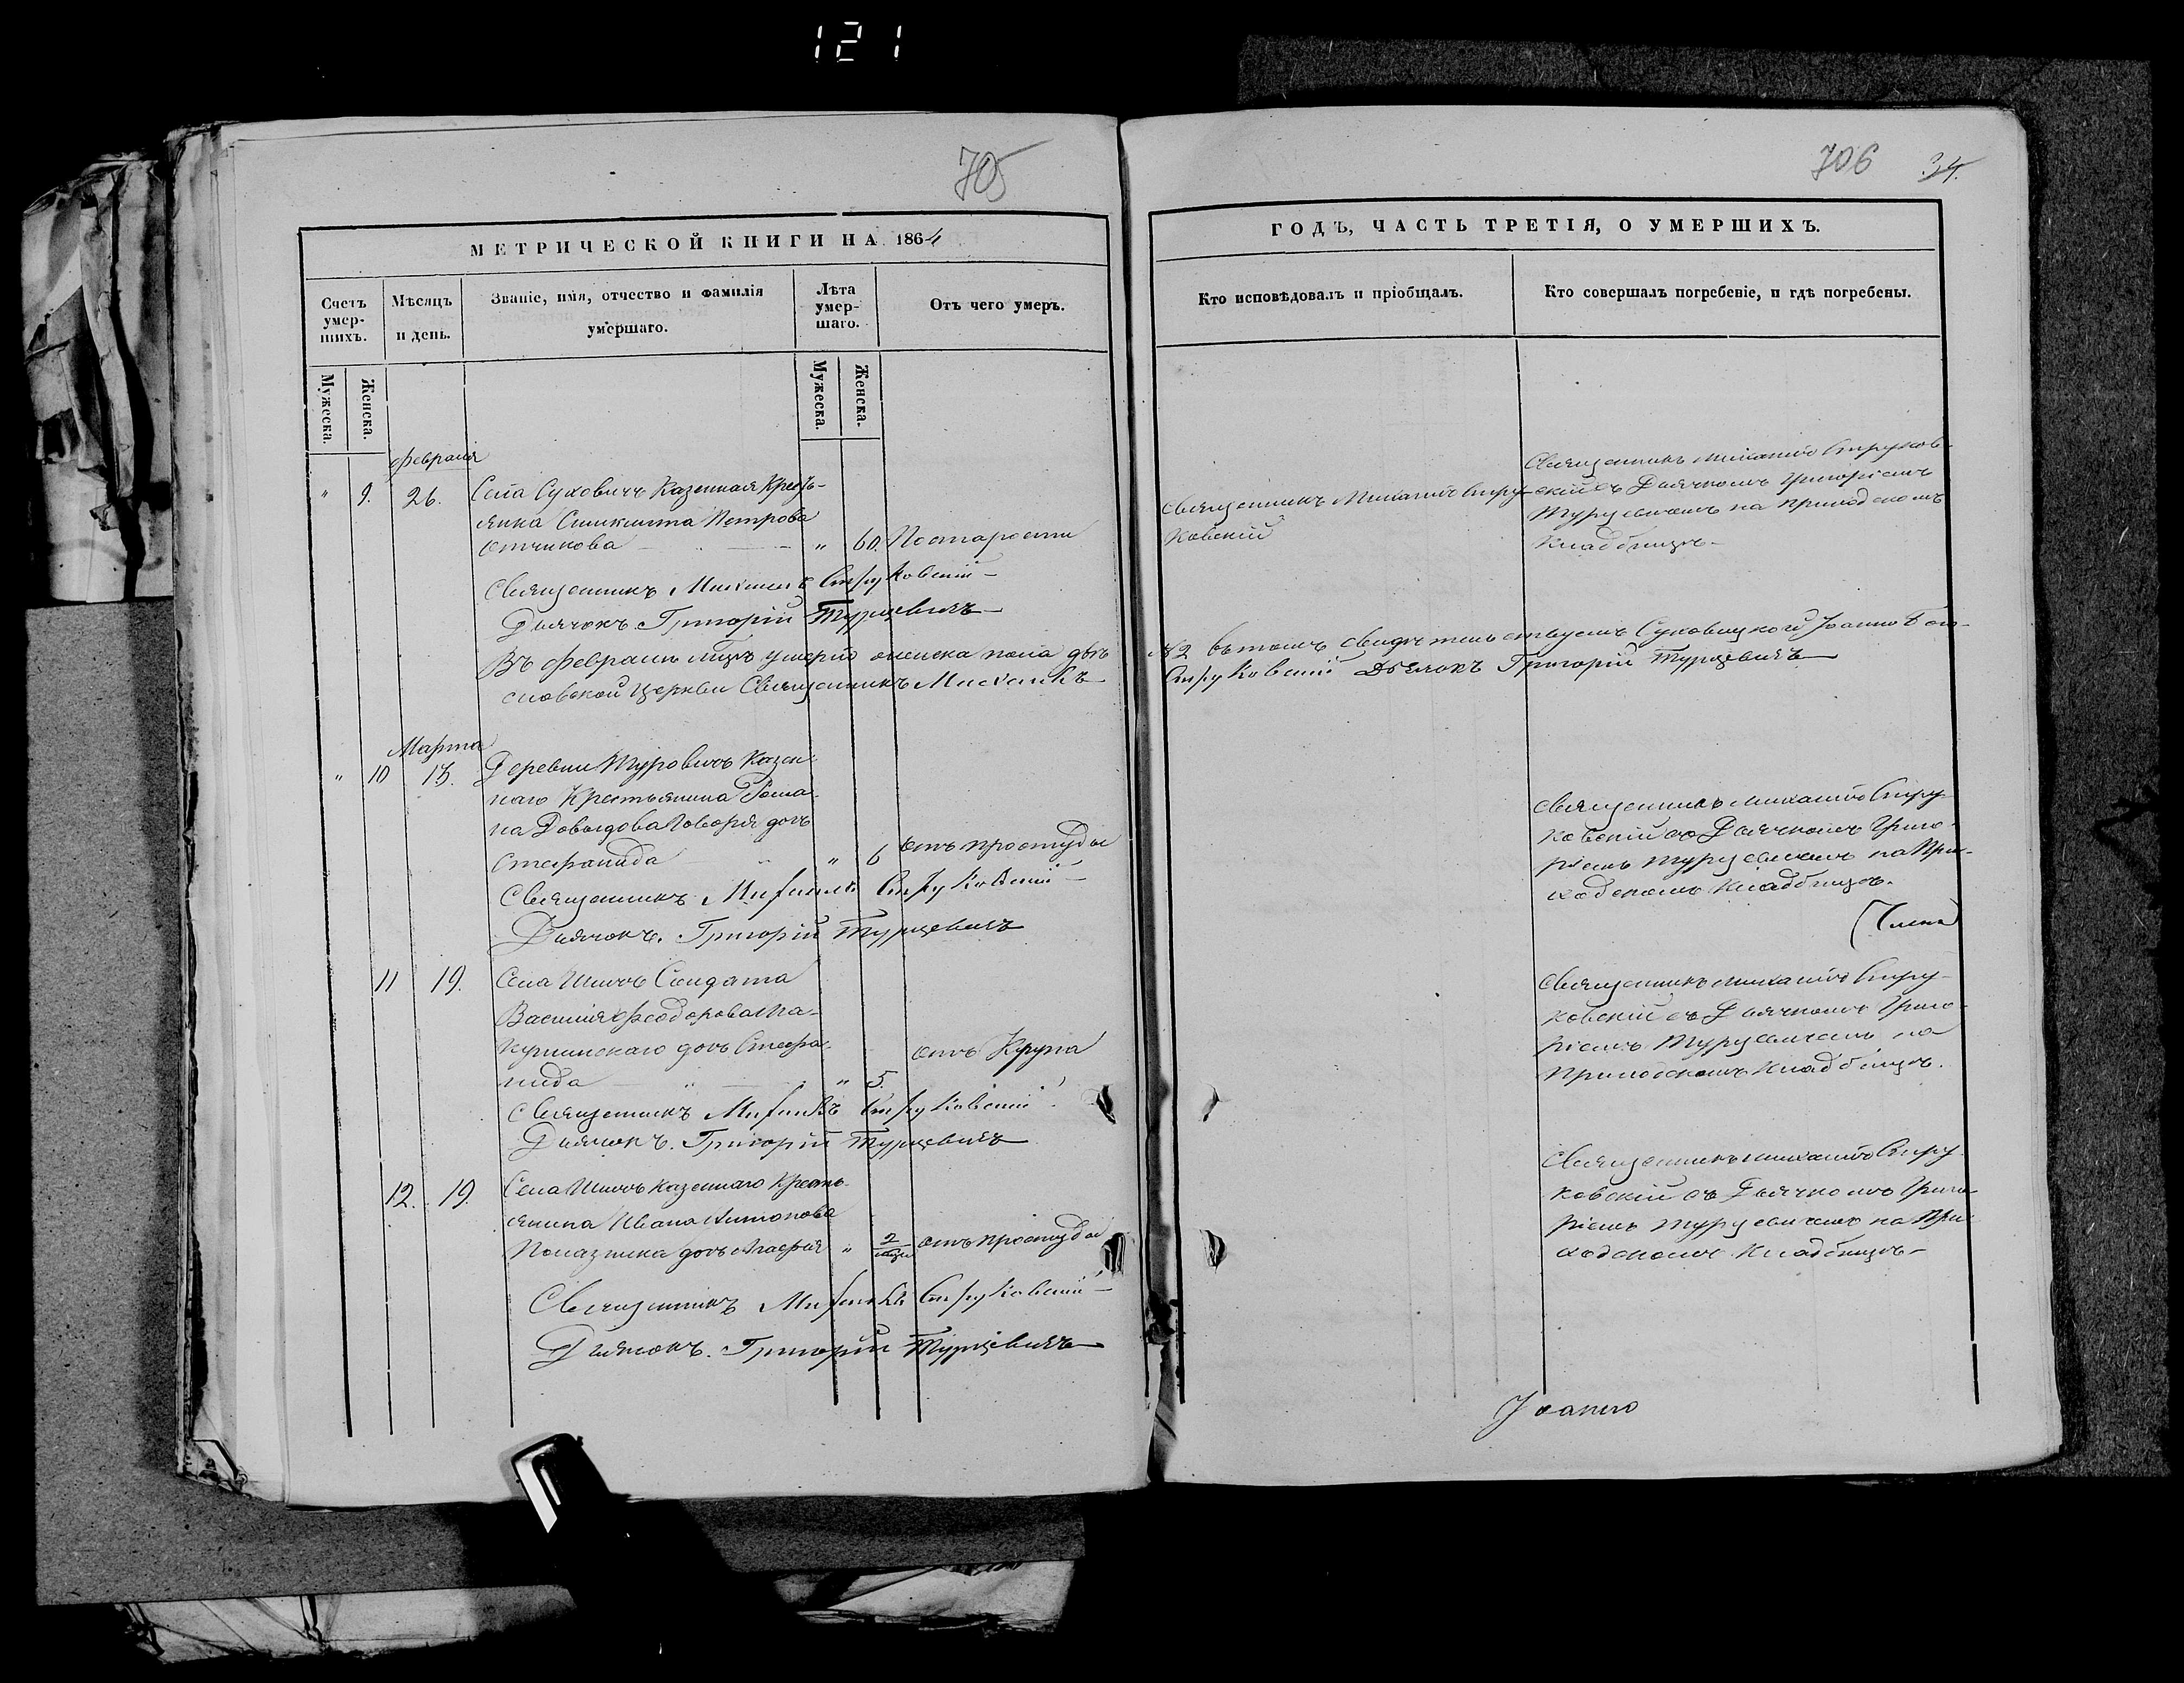 121
705
МЕТРИЧЕСКОЙ КНИГИ НА 1864
Счетъ умер-шихъ.
Мѣсяцъ и день.
Званіе, имя, отчество и фамилія умершаго.
Лѣта умер-шаго.
Отъ чего умеръ.
Мужеска.
Женска.
Мужеска.
Женска.
Февраля
" 9. 26. Села Суховичъ Казенная Кресть-
янка Синклита Петрова
" 60. По старости
Священникъ Михаилъ Струковскій
Дьячокъ Григорій Турцевичъ
Въ Февралѣ мцѣ умерло женска пола двѣ
словской Церкви Священникъ Михаилъ
Марта
" 10 13. Деревни Туровичъ Казен-
наго Крестьянина Рома-
на Давыдова дочь
Стефанида " " 6 отъ простуды
Священникъ Михаилъ Струковскій
Дьячокъ. Григорій Турцевичъ
11 19. Села Шичъ Солдата
Василія Феодорова Ма-
дочь Стефа-
нида " " 5. отъ Крупа
Священникъ Михаилъ Струковскій
Дьячокъ. Григорій Турцевичъ
12. 19. Села Шичъ казеннаго Кресть-
янина Ивана Антонова
дочь " 2 мцы отъ простуды
Священникъ Михаилъ Струковскій
Дьячокъ. Григорій Турцевичъ
706 34.
ГОДЪ, ЧАСТЬ ТРЕТІЯ, О УМЕРШИХЪ.
Кто исповѣдовалъ и пріобщалъ.
Кто совершалъ погребеніе, и гдѣ погребены.
Священникъ Михаилъ Стру-
ковскій
Священникъ Михаилъ Струков-
скій съ Дьячкомъ Григоріемъ
Турцевичемъ на приходскомъ
Кладбищѣ-
№2 въ томъ свидѣтельствуемъ Суховицкой Іоанно Бого-
Струковскій Дьячокъ Григорій Турцевичъ
Священникъ Михаилъ Стру-
ковскій съ Дьячкомъ Григо-
ріемъ Турцевичемъ на При-
ходскомъ Кладбищѣ.
Священникъ Михаилъ Стру-
ковскій съ Дьячкомъ Григо-
ріемъ Турцевичемъ на
Приходскомъ Кладбищѣ.
Священникъ Михаилъ Стру-
ковскій съ Дьячкомъ Григо-
ріемъ Турцевичемъ на При-
ходскомъ Кладбищѣ-
Іоанно